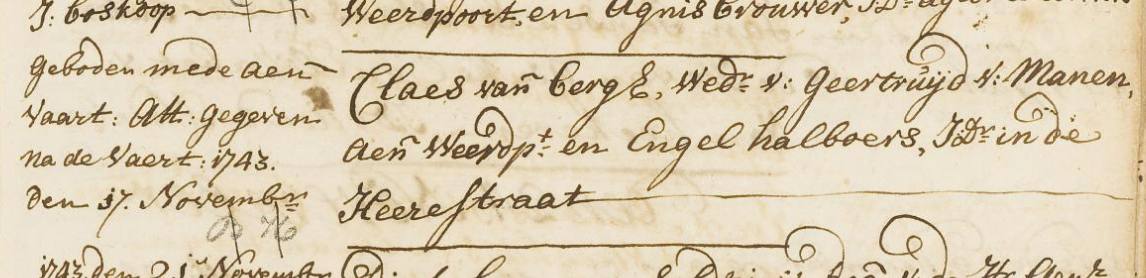 J: boskoop
Weerdpoort, en Agnis brouwer, J:Dr
Geboden mede aen
Vaart: Att: gegeven
na de Vaert: 1743.
den 17. Novembr
Claes van bergh, Wedr v: Geertruijd v: Manen,
aen Weerdpt en Engel halboers, J:Dr in de
Heerestraat
1743 den 21 Novembr